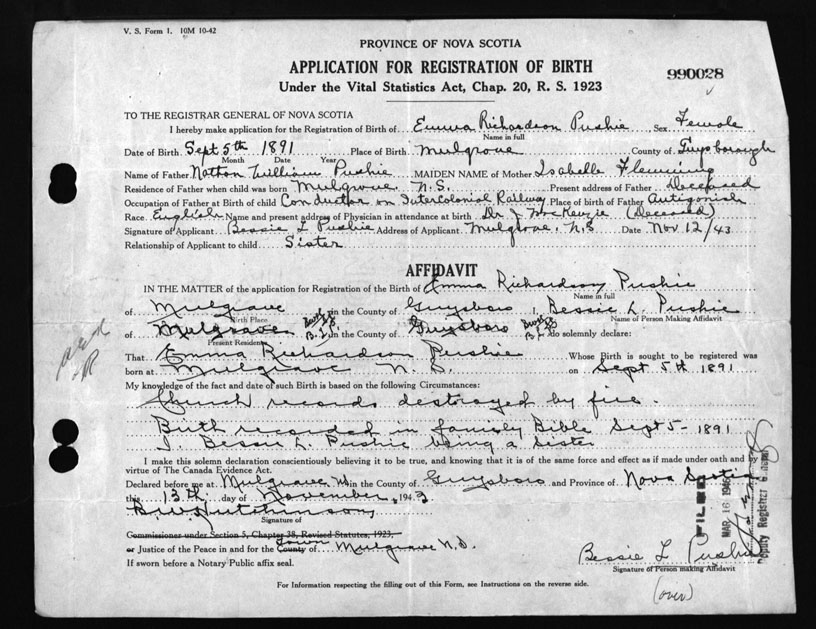 V. S. Form 1. 10M 10-42
PROVINCE OF NOVA SCOTIA
APPLICATION FOR REGISTRATION OF BIRTH
990028
Under the Vital Statistics Act, Chap. 20, R. S. 1923
TO THE REGISTRAR GENERAL OF NOVA SCOTIA
I hereby make application for the Registration of Birth of Emma Richardson Pushie Sex Female
Name in full
Date of Birth Sept 5th 1891 Place of Birth Mulgrave County of Guysborough
Month Date Year
Name of Father Nathan William Pushie MAIDEN NAME of Mother Isabelle Flemming
Residence of Father when child was born Mulgrave N.S. Present address of Father Deceased
Occupation of Father at Birth of child Conductor on Intercolonial Railway Place of birth of Father Antigonish
Race English Name and present address of Physician in attendance at birth Dr J McKenzie (Deceased)
Signature of Applicant Bessie L Pushie Address of Applicant Mulgrave. N.S Date Nov 12/43
Relationship of Applicant to child Sister
AFFIDAVIT
IN THE MATTER of the application for Registration of the Birth of Emma Richardson Pushie
Name in full
of Mulgrave in the County of Guysboro I, Bessie L. Pushie
Birth Place Name of Person Making Affidavit
of Mulgrave in the County of Guysboro do solemnly declare:
Present Resident
That Emma Richardson Pushie Whose Birth is sought to be registered was
born at Mulgrave N. S. on Sept 5th 1891
My knowledge of the fact and date of such Birth is based on the following Circumstances:
Church records destroyed by fire.
Birth recorded in family Bible Sept 5- 1891
I Bessie L. Pushie being a sister
I make this solemn declaration conscientiously believing it to be true, and knowing that it is of the same force and effect as if made under oath and by
virtue of The Canada Evidence Act.
Declared before me at Mulgrave in the County of Guysboro and Province of Nova Scotia
this 13th day of November 1943
B.W. Hutchinson
Signature of
Commissioner under Section 5, Chapter 38, Revised Statutes, 1923,
or Justice of the Peace in and for the County Town of Mulgrave N.S.
If sworn before a Notary Public affix seal.
FILED
MAR 16 1945
Deputy Registrar General
Bessie L Pushie
Signature of Person making Affidavit
For Information respecting the filling out of this Form, see Instructions on the reverse side.
(over)